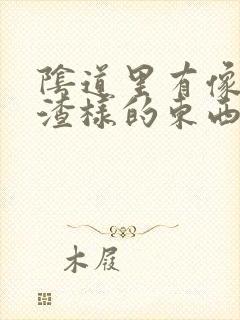 陰道里有像
渣樣的東西
木屐